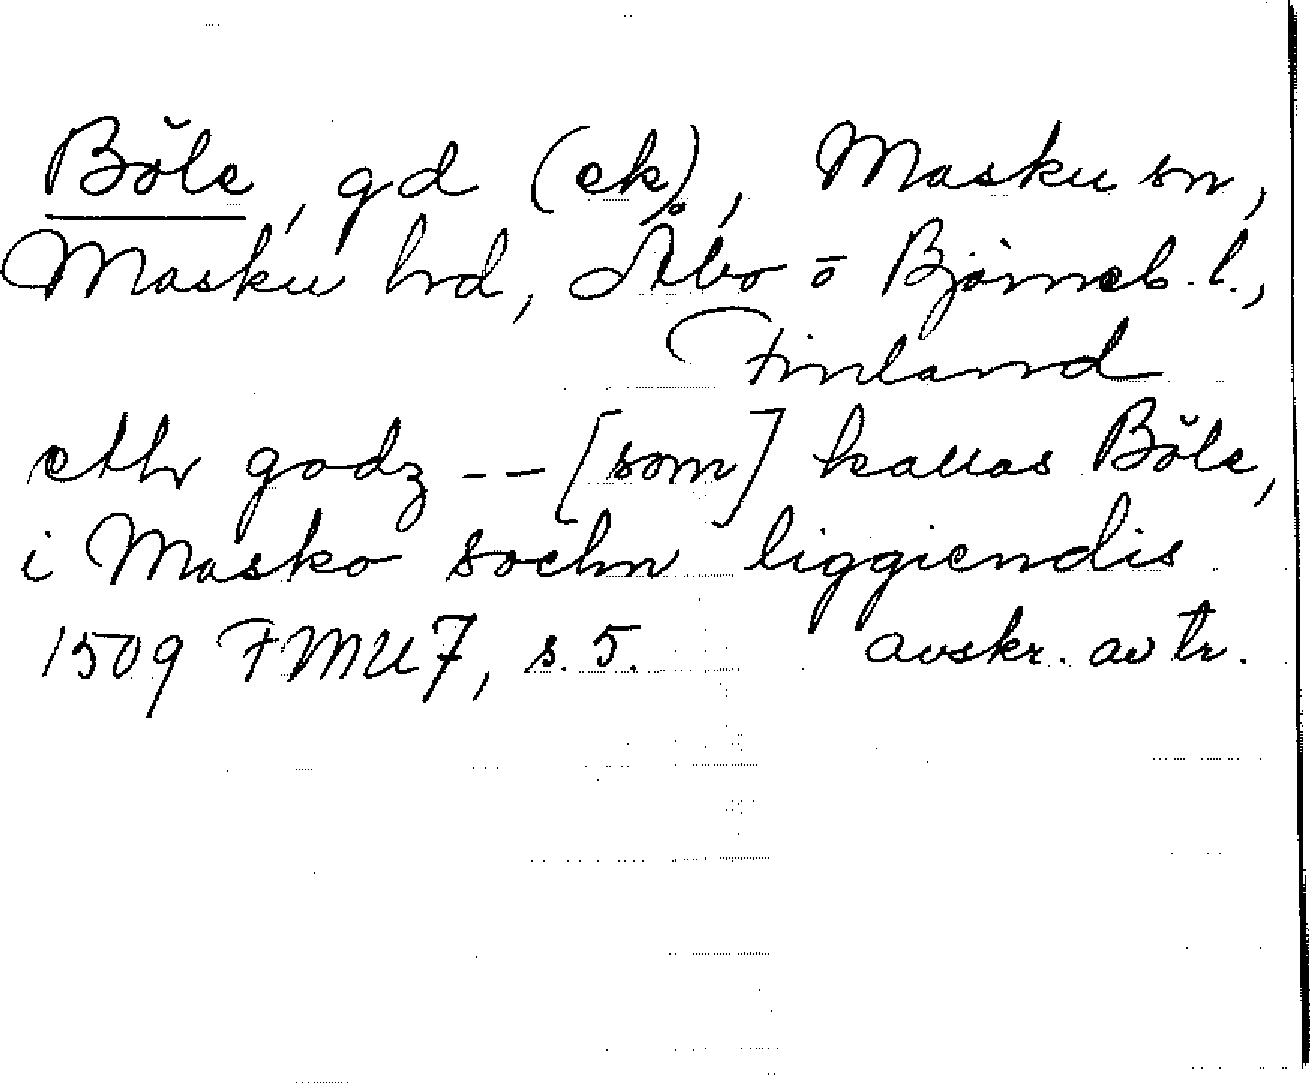 Böle, gd (ek), Masku sn,
Masku hrd, Åbo o Björneb. l.,
Finland
ethr godz -- [som] kallas Böle,
i Masko sochn liggiendis
1509 FMU 7, s. 5. avskr. av tr.